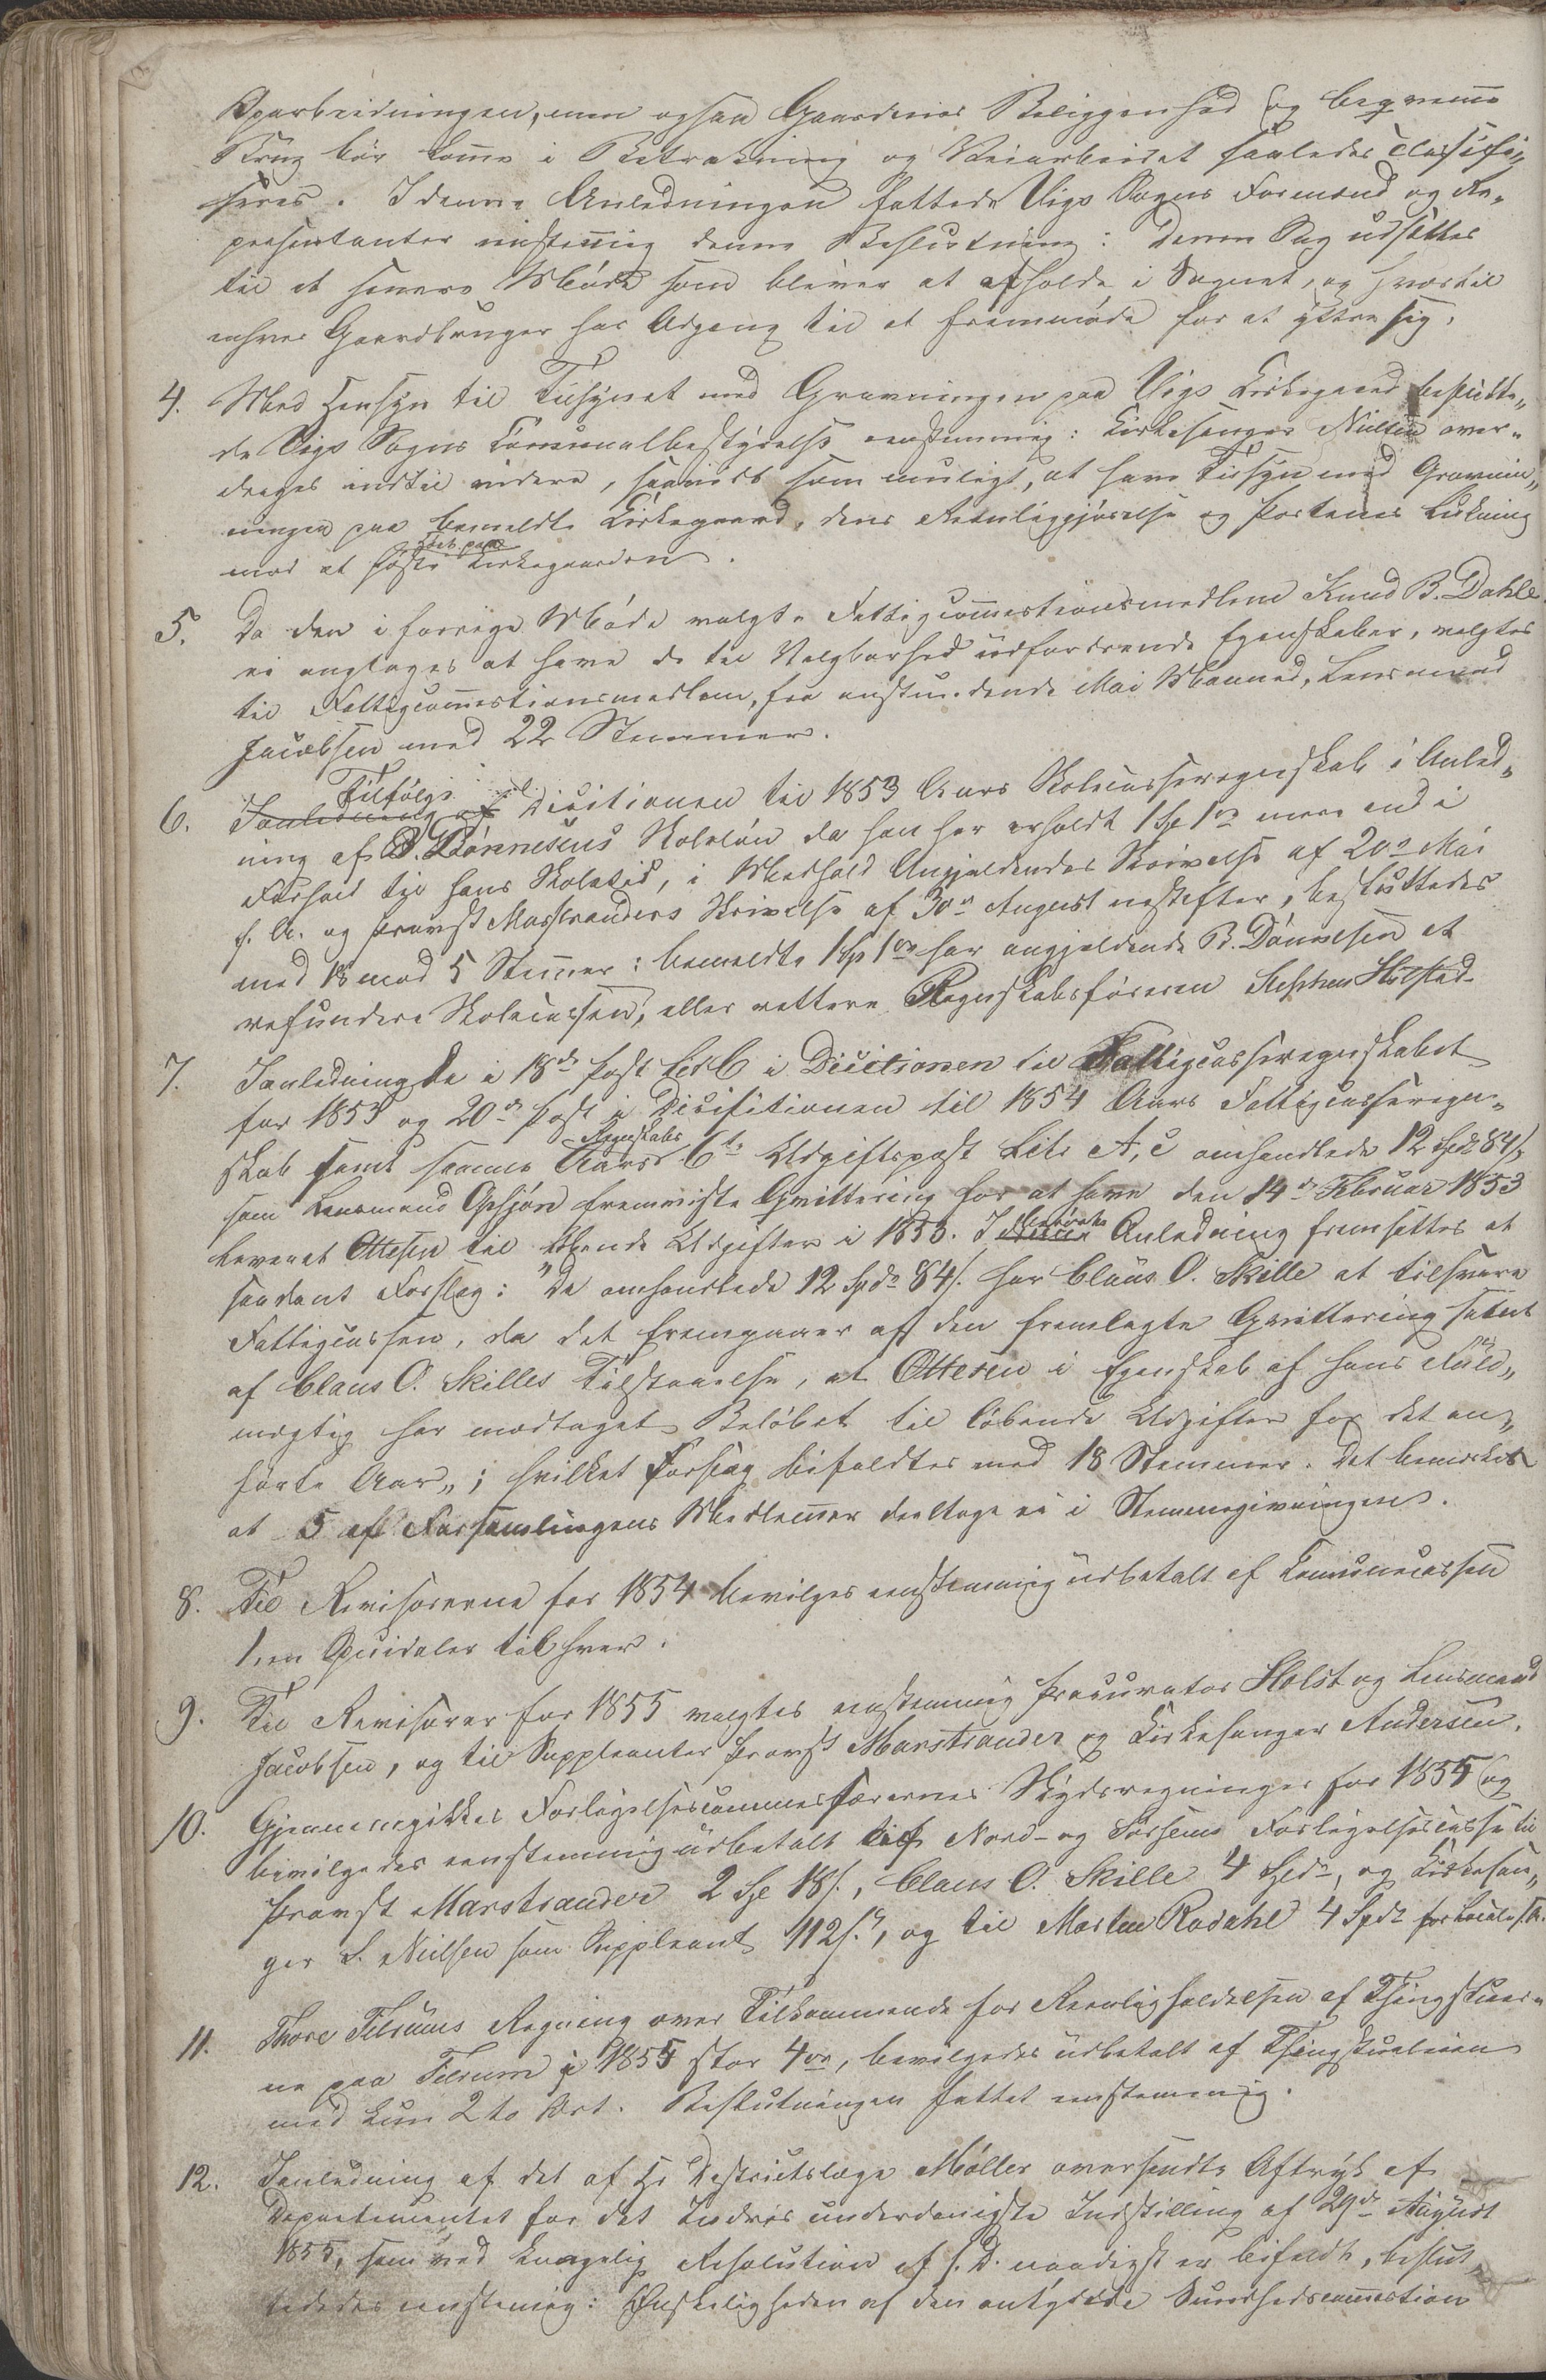 Oparbeidningen, men ogsaa Gaardenes Beliggenhed og beqvemme
Brug bør komme i Betraktning og Veiarbeidet saaledes classifi„
seres. I denne Anledningen fattede Vigs Sogns Formænd og Re„
presentanter eenstemig denne Beslutning: Denne Sag udsættes
til et senere Møde som bliver at afholde i Sognet, og hvortil
enhver Gaardbruger har Adgang til at fremmøde for at yttre sig.
4. Med Hensyn til Tilsynet med Gravningen paa Vigs Kirkegaard besluttе„
de Vigs Sogns Communalbestyrelse eenstemmig: Kirkesanger Nielsen over„
drages indtil videre, saavidt som muligt, at have Tilsyn med Gravnin„
ningen paa bemeldte Kirkegaard, dens Reenliggjørelse og Portenes Lukning
mod at høste Græsset paa Kirkegaarden.
5. Da den i forrige Møde valgte Fattigcommissionsmedlem Knud B. Dahle
ei antages at have de til Valgbarhed udfordrende Egenskaber, valgtes
til Fattigcommissionsmedlem, fra anstundende Mai Maaned, Lensmand
Jacobsen med 22 Stemmer.
6. Ifølge Decisionen til 1853 Aars Skolecasseregnskab i Anled„
ning af B. Dønnesens Skoleløn da han har erholdt 1 Sp 1 ort mere end i
Forhold til hans Skoletid, i Medhold Angjeldendes Skrivelse af 20de Mai
f. A. og Provst Marstranders Skrivelse af 30te August nestefter, besluttedes
med 18 mod 5 Stemmer: bemeldte 1 Sp 1 ort har angjeldende B. Dønnesen at
refundere Skolecassen, eller rettere Regnskabsføreren Stephen Hilstad.
7. I anledning de i 18de Post Litr C i Decitionen til Fattigcasseregnskabet
for 1853 og 20de Post i Decisitionen til 1854 Aars Fattigcasseregn„
skab samt samme Regnskabs 6te Udgiftspost Litr A, c omhandlede 12 Spd 84 s
som Lensmand Gesjøn fremviste Qvittering for at have den 14de Februar 1853
leveret Ottesen til løbende Udgifter i 1853. I Anledning fremsattes et
saadant Forslag: "De omhandlede 12 Spd 84 s. har Claus O. Skille at tilsvare
Fattigcassen, da det fremgaaer af den fremlagte Qvittering samt
af Claus O. Skilles Tilstaaelse, at Ottesen i Egenskab af hans Fuld„
mægtig har modtaget Beløbet til løbende Udgifter for det an„
førte Aar„; hvilket Forslag bifaldtes med 18 Stemmer. Det bemærkes
at 5 af Forsamlingens Medlemmer deeltoge ei i Stemmegivningen.
8. Til Revisorerne for 1854 bevilges eenstemmig udbetalt af Communecassen
1 en Speciedaler til hver.
9. Til Revisorer for 1855 valgtes eenstemmig Procurator Holst og Lensmand
Jacobsen, og til Suppleanter Provst Marstrander og Kirkesanger Andersen.
10. Gjennemgikkes Forligelsescommissærernes Skydsregninger for 1855 og
bevilgedes eenstemmig udbetalt af Nord- og Sørsems Forligelsescasse til
Provst Marstrander 2 Sp 18 s., Claus O. Skille 4 Spd, og Kirkesan„
ger S. Nielsen som Suppleant 112 s., og til Morten Rodahl 4 Spd for Locale f. A.
11. Thore Felsums Regning over Tilkommende for Reenligholdelsen af Thingstuer„
ne paa Felsum i 1855 stor 4 ort, bevilgedes udbetalt af Thingstueleien
med kun 2 to Ort. Beslutningen fattet eenstemmig.
12. I anledning af det af Hr Destrictslæge Møller oversendte Aftryk af
Departementet for det Indres underdanigste Indstilling af 29de August
1855, som ved kongelig Resolution af s. D. naadigst er bifaldt, beslut„
tedes eenstemig: Ønskeligheden af den antydede Sundhedscommission